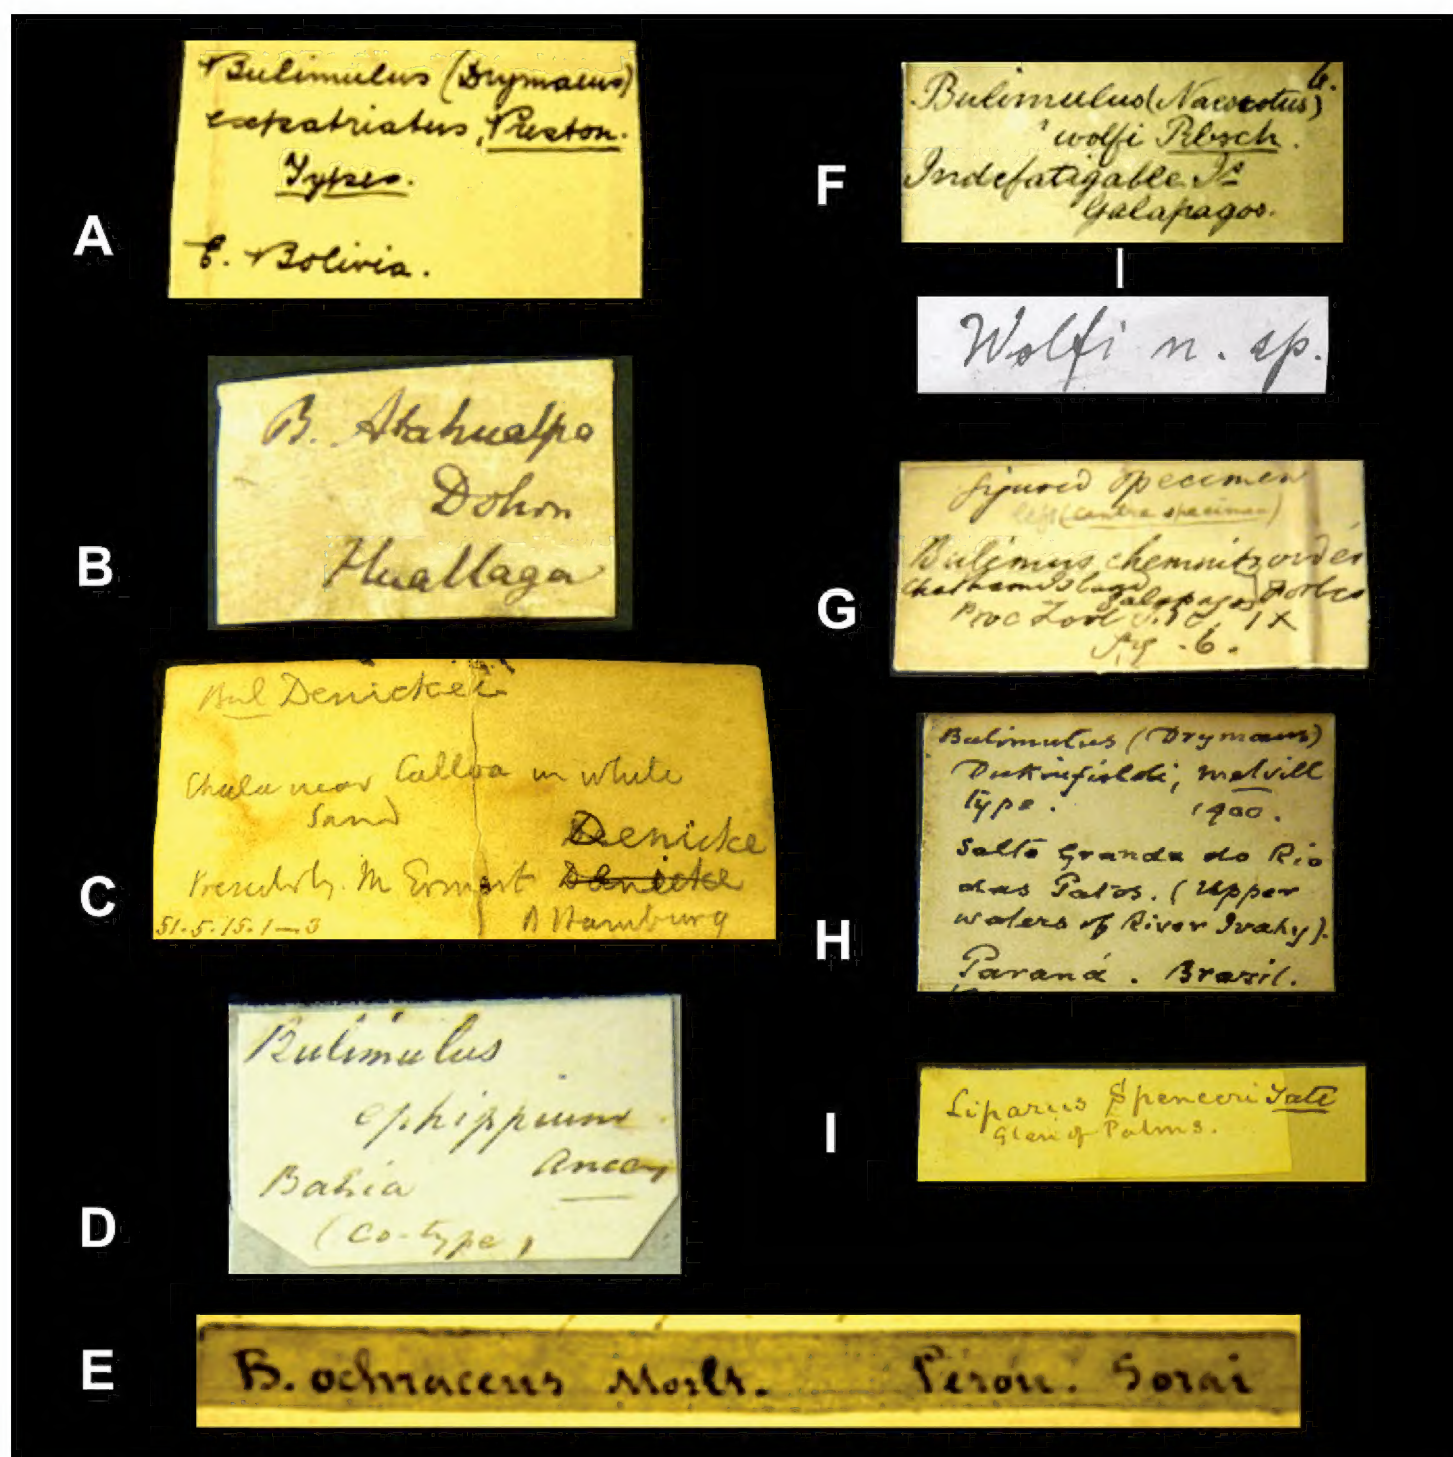 A
Bulimulus (Drymaeus)
expatriatus, Preston.
Types.
E. Bolivia.
B
B. Atahualpa
Dohrn
Huallaga
C
Bul Denickei
Chala near Calloa in white
Sand
Denicke
M Ernest Denicke
Hamburg
51.5.15.1—3
D
Bulimulus
ephippium
Ancey
Bahia
(Co-type)
E
B. ochraceus Morlt. Pérou. Sorai
F
6.
Bulimulus (Naesiotus)
wolfi Rbsch.
Indefatigable Is
Galapagos.
Wolfi n. sp.
G
figured specimen
left (centre specimen)
Bulimus chemnitzoides
Chatham Island Galapagos Forbes
Proc Zool IX
fig. 6.
H
Bulimulus (Drymaeus)
Dukinfieldi, Melvill
type. 1900.
Salto Grande do Rio
das Patos. (Upper
waters of River Ivahy).
Paraná. Brazil.
I
Liparus Spenceri Tate
Glen of Palms.